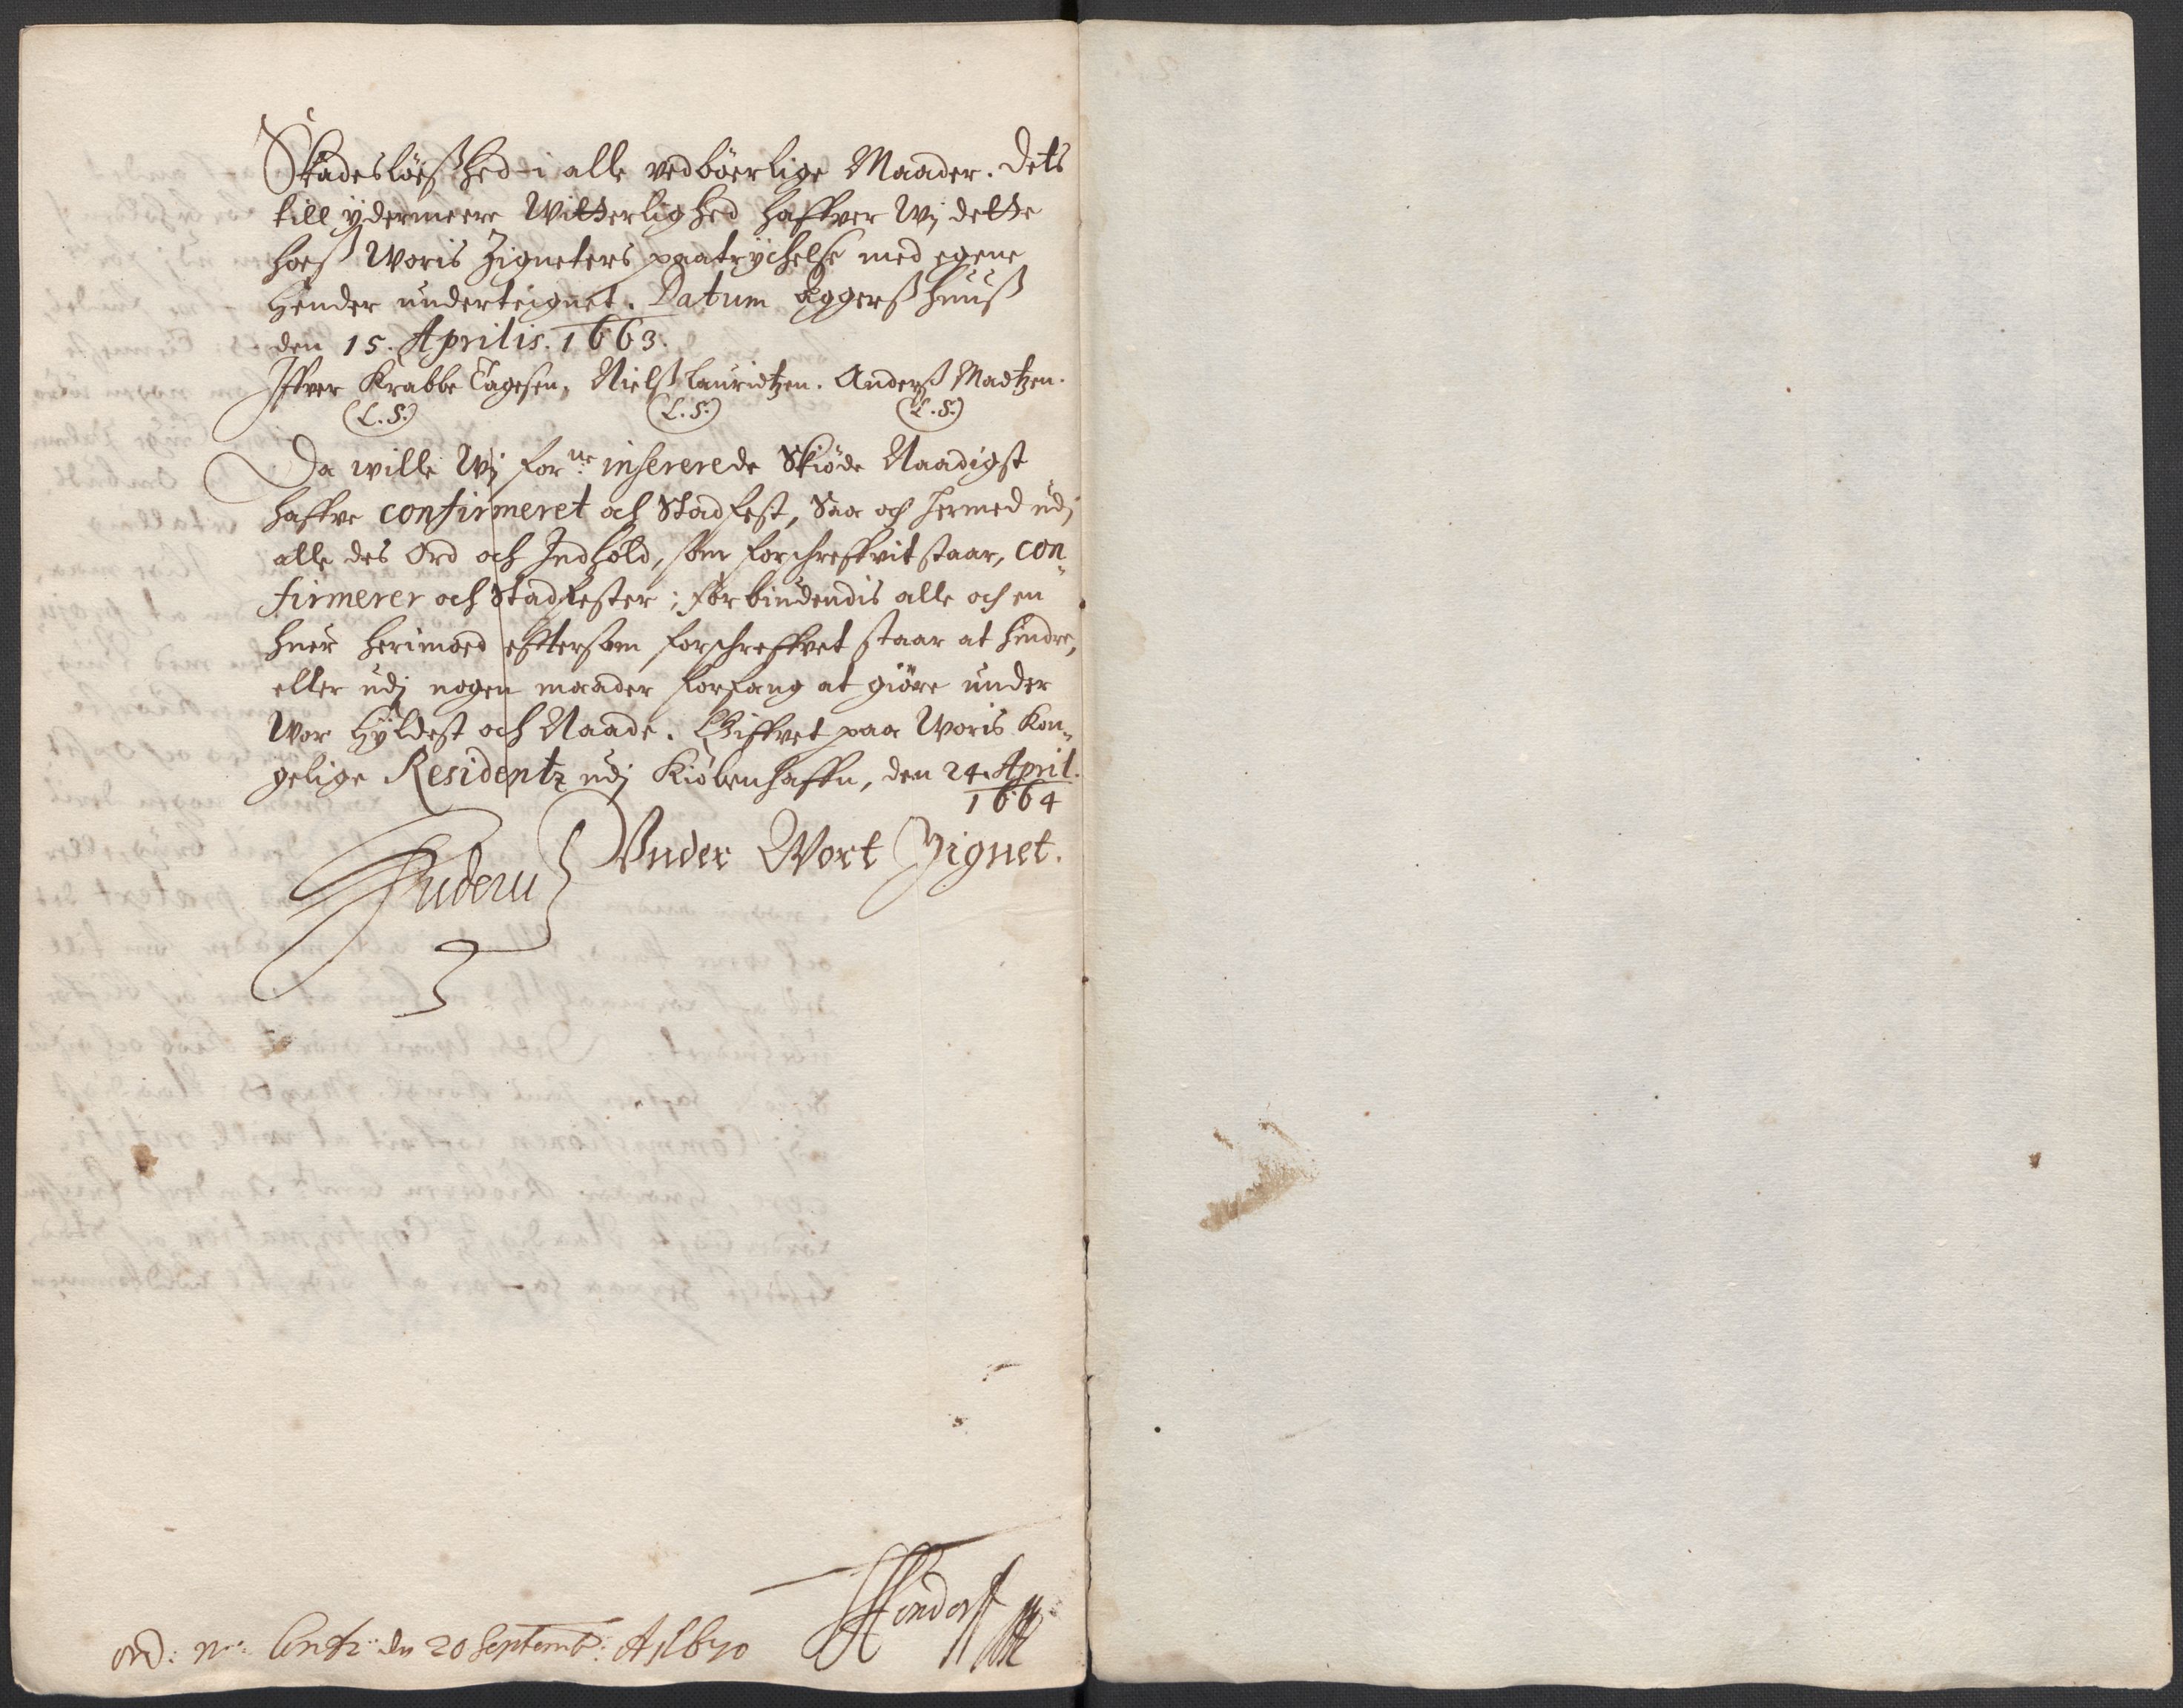 Skadeslöeßhed i alle vedböerlige Maader. Dets
till ÿdermeere Witterlighed haffver Wj dette
hoeß Woris Zigneters paatrÿchelse med egene
Hender underteignet. Datum Aggerßhuuß
den 15. Aprilis. 1663.
Iffver Krabbe Tagesen, Nielß Lauridtzen. Anderß Madtzen.
(L.S.) (L.S.) (L.S.)
Da wille Wj forne insererede Skiöde Naadigst
haffve confirmeret och Stadfest, Saa och hermed udj
alle des Ord och Indhold, som forschreffvit staar, con„
firmerer och Stadfester; forbiudendis alle och en
huer herimoed efftersom forschreffvet staar at hindre,
eller udj nogen maader forfang at giöre under
Wor Hÿldest och Naade. Giffvet paa Woris Kon„
gelige Residentz udj Kiöbenhaffn, den 24. April.
1664
Vnder Wort Zignet.
ord: den 20 Septemb: Ao 1670